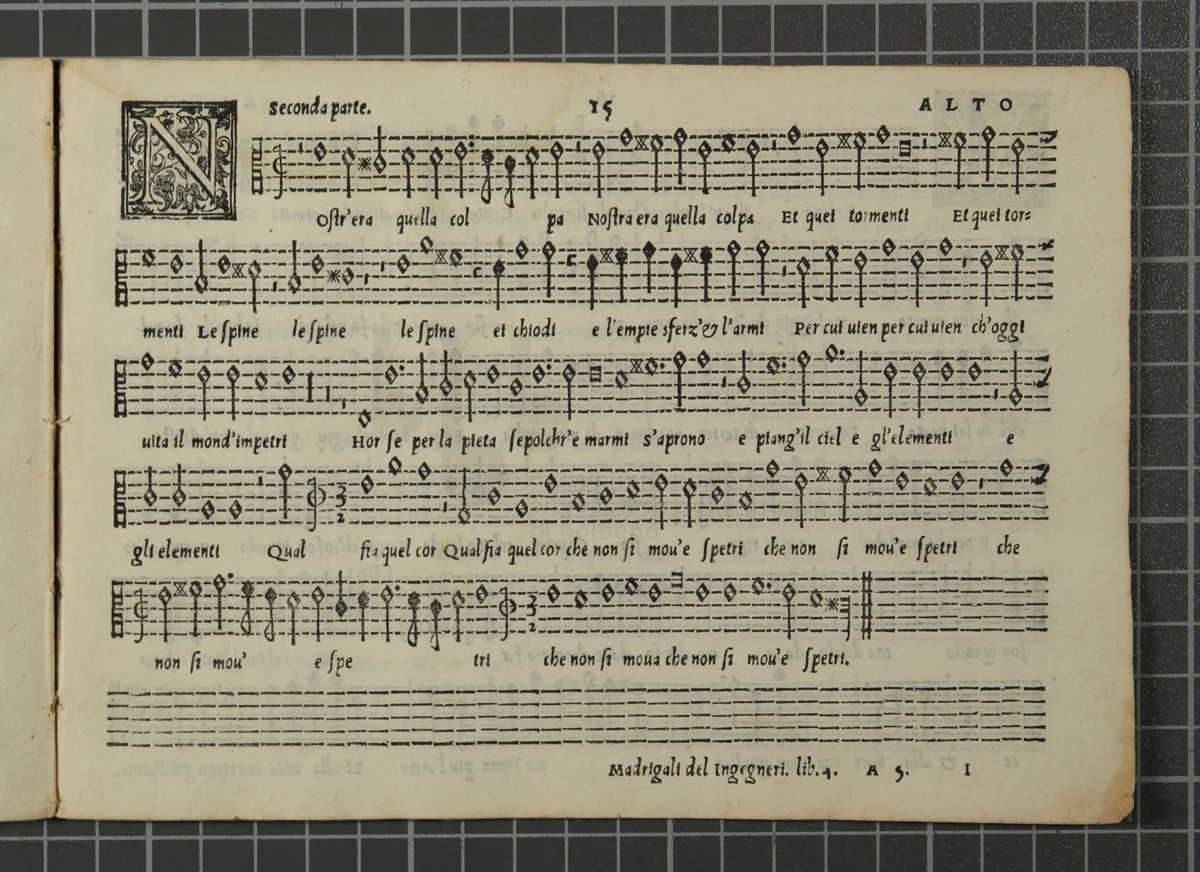 Seconda parte. 15 ALTO
NOstr'era quella col pa Nostra era quella colpa Et quei tormenti Et quei tor=
menti Le spine le spine le spine ei chiodi e l'empie sferz'& l'armi Per cui uien per cui uien ch'oggi
uita il mond'impetri Hor se per la pieta sepolchr'e marmi s'aprono e piang'il ciel e gl'elementi e
gli elementi Qual fia quel cor Qual fia quel cor che non si mou'e spetri che non si mou'e spetri che
non si mou' e spe tri che non si moua che non si mou'e spetri.
Madrigali del Ingegneri. lib. 4. A 5. I